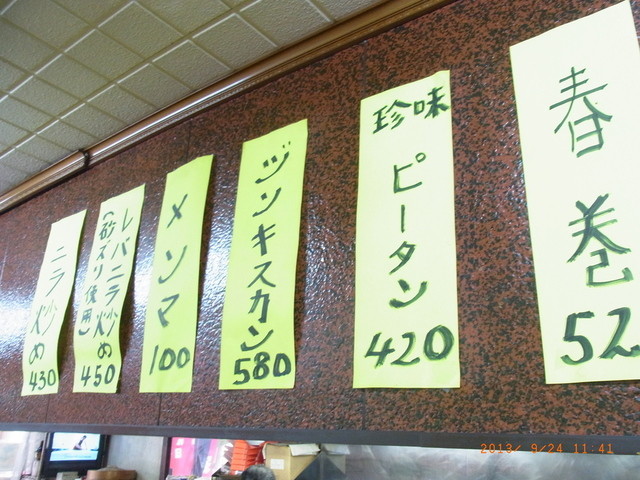 春巻
52
珍味
ピータン
420
ジンキスカン
580
メンマ
100
レバニラ炒め
(砂ズリ使用)
450
ニラ炒め
430
2013/ 9/24 11:41